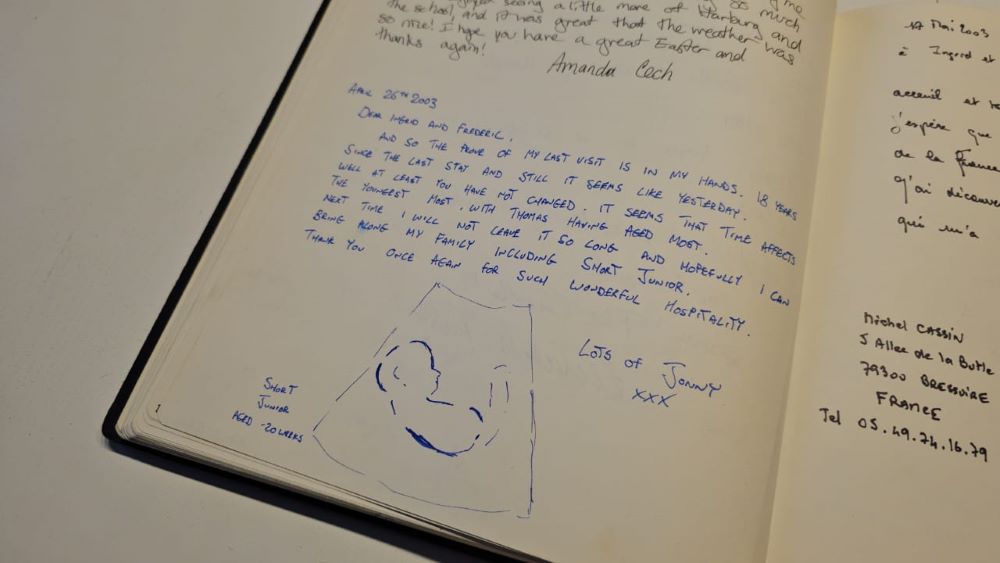 seeing a little more of Harburg and
the school, and it was great that the weather was
so nice! I hope you have a great Easter and
thanks again!
Amanda Cech
APRIL 26TH 2003
DEAR INGRID AND FREDERIC,
AND SO THE PROVE OF MY LAST VISIT IS IN MY HANDS. 18 YEARS
SINCE THE LAST STAY AND STILL IT SEEMS LIKE YESTERDAY.
WELL AT LEAST YOU HAVE NOT CHANGED. IT SEEMS THAT TIME AFFECTS
THE YOUNGEST MOST, WITH THOMAS HAVING AGED MOST.
NEXT TIME I WILL NOT LEAVE IT SO LONG AND HOPEFULLY I CAN
BRING ALONG MY FAMILY INCLUDING SHORT JUNIOR.
THANK YOU ONCE AGAIN FOR SUCH WONDERFUL HOSPITALITY.
LOTS OF JONNY
XXX
SHORT
JUNIOR
AGED -20 WEEKS
17 Mai 2003
à Ingrid et
accueil et
j'espère que
de la
q'ai découve
qui m'a
Michel CASSIN
5 Allée de la Butte
79300 BRESSUIRE
FRANCE
Tel 05.49.74.16.79